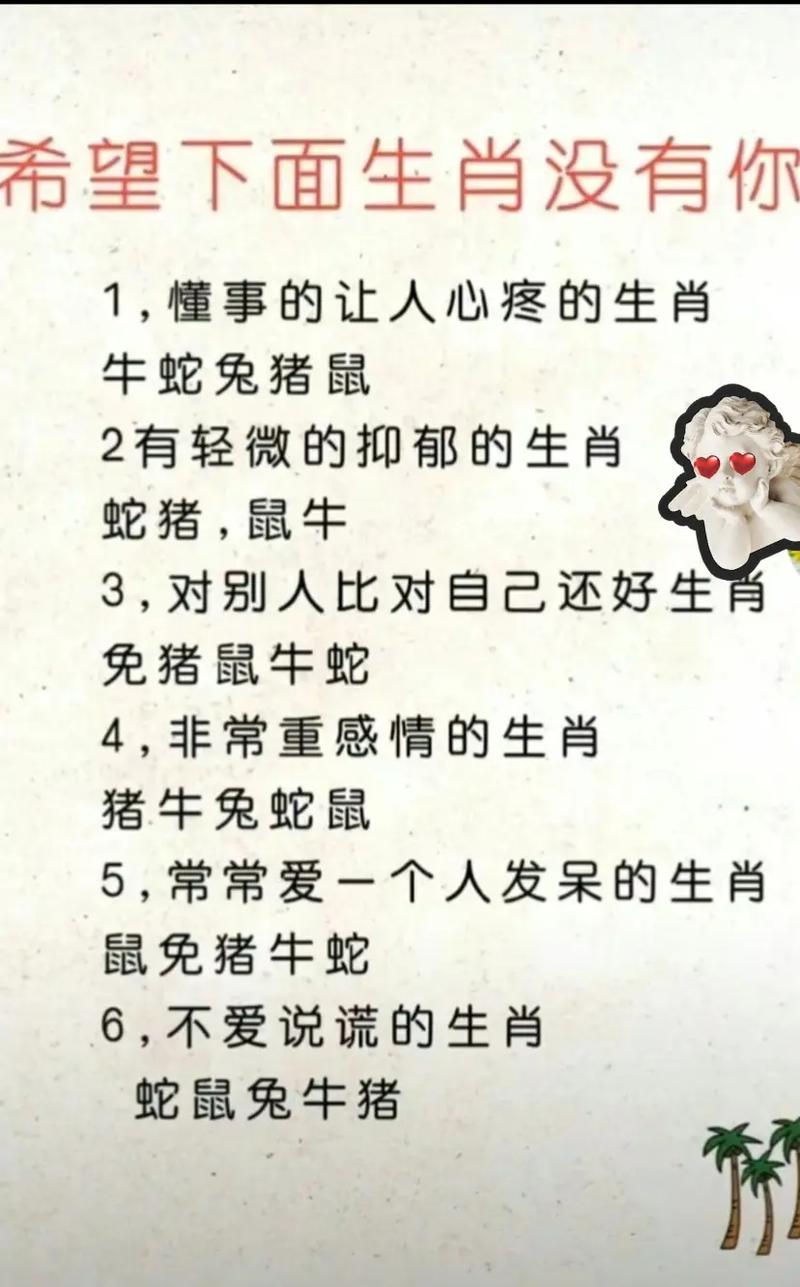 希望下面生肖没有你
1,懂事的让人心疼的生肖
牛蛇兔猪鼠
2有轻微的抑郁的生肖
蛇猪,鼠牛
3,对别人比对自己还好生肖
免猪鼠牛蛇
4,非常重感情的生肖
猪牛兔蛇鼠
5,常常爱一个人发呆的生肖
鼠免猪牛蛇
6,不爱说谎的生肖
蛇鼠兔牛猪